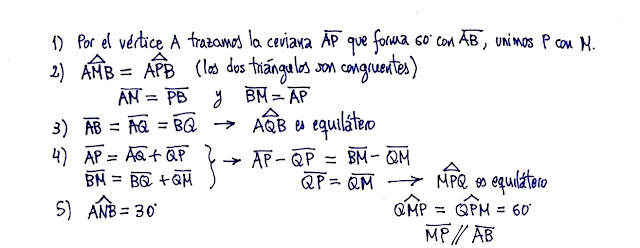 1) Por el vértice A trazamos la ceviana AP que forma 60° con AB, unimos P con M.
2) AMB = APB (los dos triángulos son congruentes)
AM = PB y BM = AP
3) AB = AQ = BQ → AQB es equilátero
4) AP = AQ + QP } → AP - QP = BM - QM
BM = BQ + QM QP = QM → MPQ es equilátero
5) ANB = 30° QMP = QPM = 60°
MP // AB